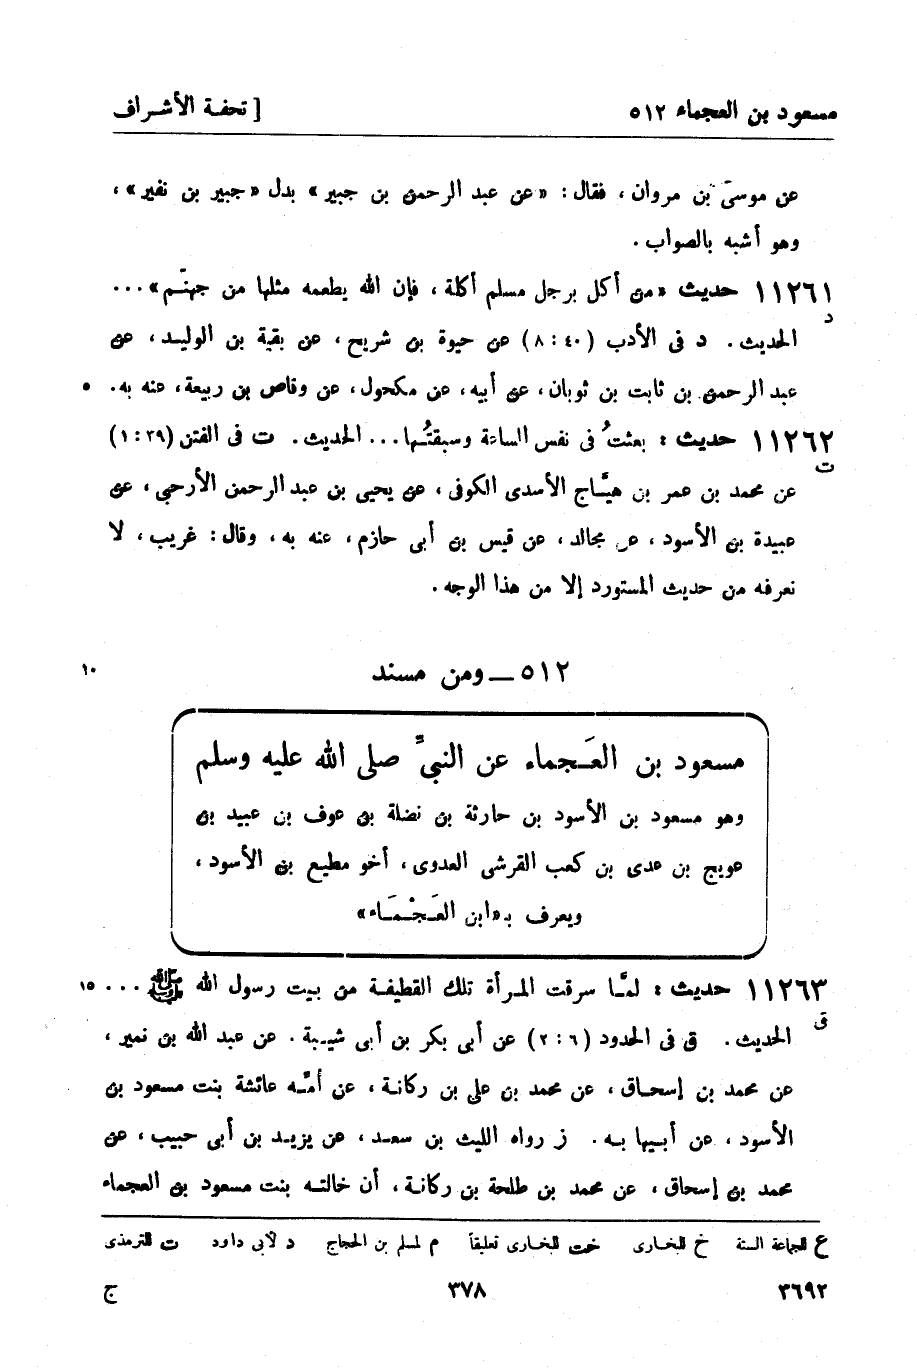 مسعود بن العجماء ٥١٢ [ تحفة الأشراف
عن موسى بن مروان ، فقال : «عن عبد الرحمن بن جبير» بدل «جبير بن نفير» ،
وهو أشبه بالصواب .
١١٢٦١ حديث «من أكل برجل مسلم أكلة ، فإن الله يطعمه مثلها من جهنّم» ...
د
الحديث . د فى الأدب (٤٠ : ٨) عن حيوة بن شريح ، عن بقية بن الوليد ، عن
عبد الرحمن بن ثابت بن ثوبان ، عن أبيه ، عن مكحول ، عن وقاص بن ربيعة ، عنه به . ٥
١١٢٦٢ حديث : بعثتُ فى نفس الساعة وسبقتُها ... الحديث . ت فى الفتن (٣٩ : ١)
ت
عن محمد بن عمر بن هيَّاج الأسدى الكوفى ، عن يحيى بن عبد الرحمن الأرحبى ، عن
عبيدة بن الأسود ، عن مجالد ، عن قيس بن أبى حازم ، عنه به ، وقال : غريب ، لا
نعرفه من حديث المستورد إلا من هذا الوجه .
٥١٢ — ومن مسند ١٠
مسعود بن العَجماء عن النبىّ صلى الله عليه وسلم
وهو مسعود بن الأسود بن حارثة بن نضلة بن عوف بن عبيد بن
عويج بن عدى بن كعب القرشى العدوى ، أخو مطيع بن الأسود ،
ويعرف بـ«ابن العَجْمَاء»
١١٢٦٣ حديث : لمَّا سرقت المرأة تلك القطيفة من بيت رسول الله ﷺ ... ١٥
ق
الحديث . ق فى الحدود (٦ : ٢) عن أبى بكر بن أبى شيبة . عن عبد الله بن نمير ،
عن محمد بن إسحاق ، عن محمد بن على بن ركانة ، عن أمّه عائشة بنت مسعود بن
الأسود ، عن أبيها به . ز رواه الليث بن سعد ، عن يزيد بن أبى حبيب ، عن
محمد بن إسحاق ، عن محمد بن طلحة بن ركانة ، أن خالته بنت مسعود بن العجماء
ع للجماعة الستة خ للبخارى خت للبخارى تعليقاً م لمسلم بن الحجاج د لأبى داود ت للترمذى
٣٦٩٢ ٣٧٨ ج